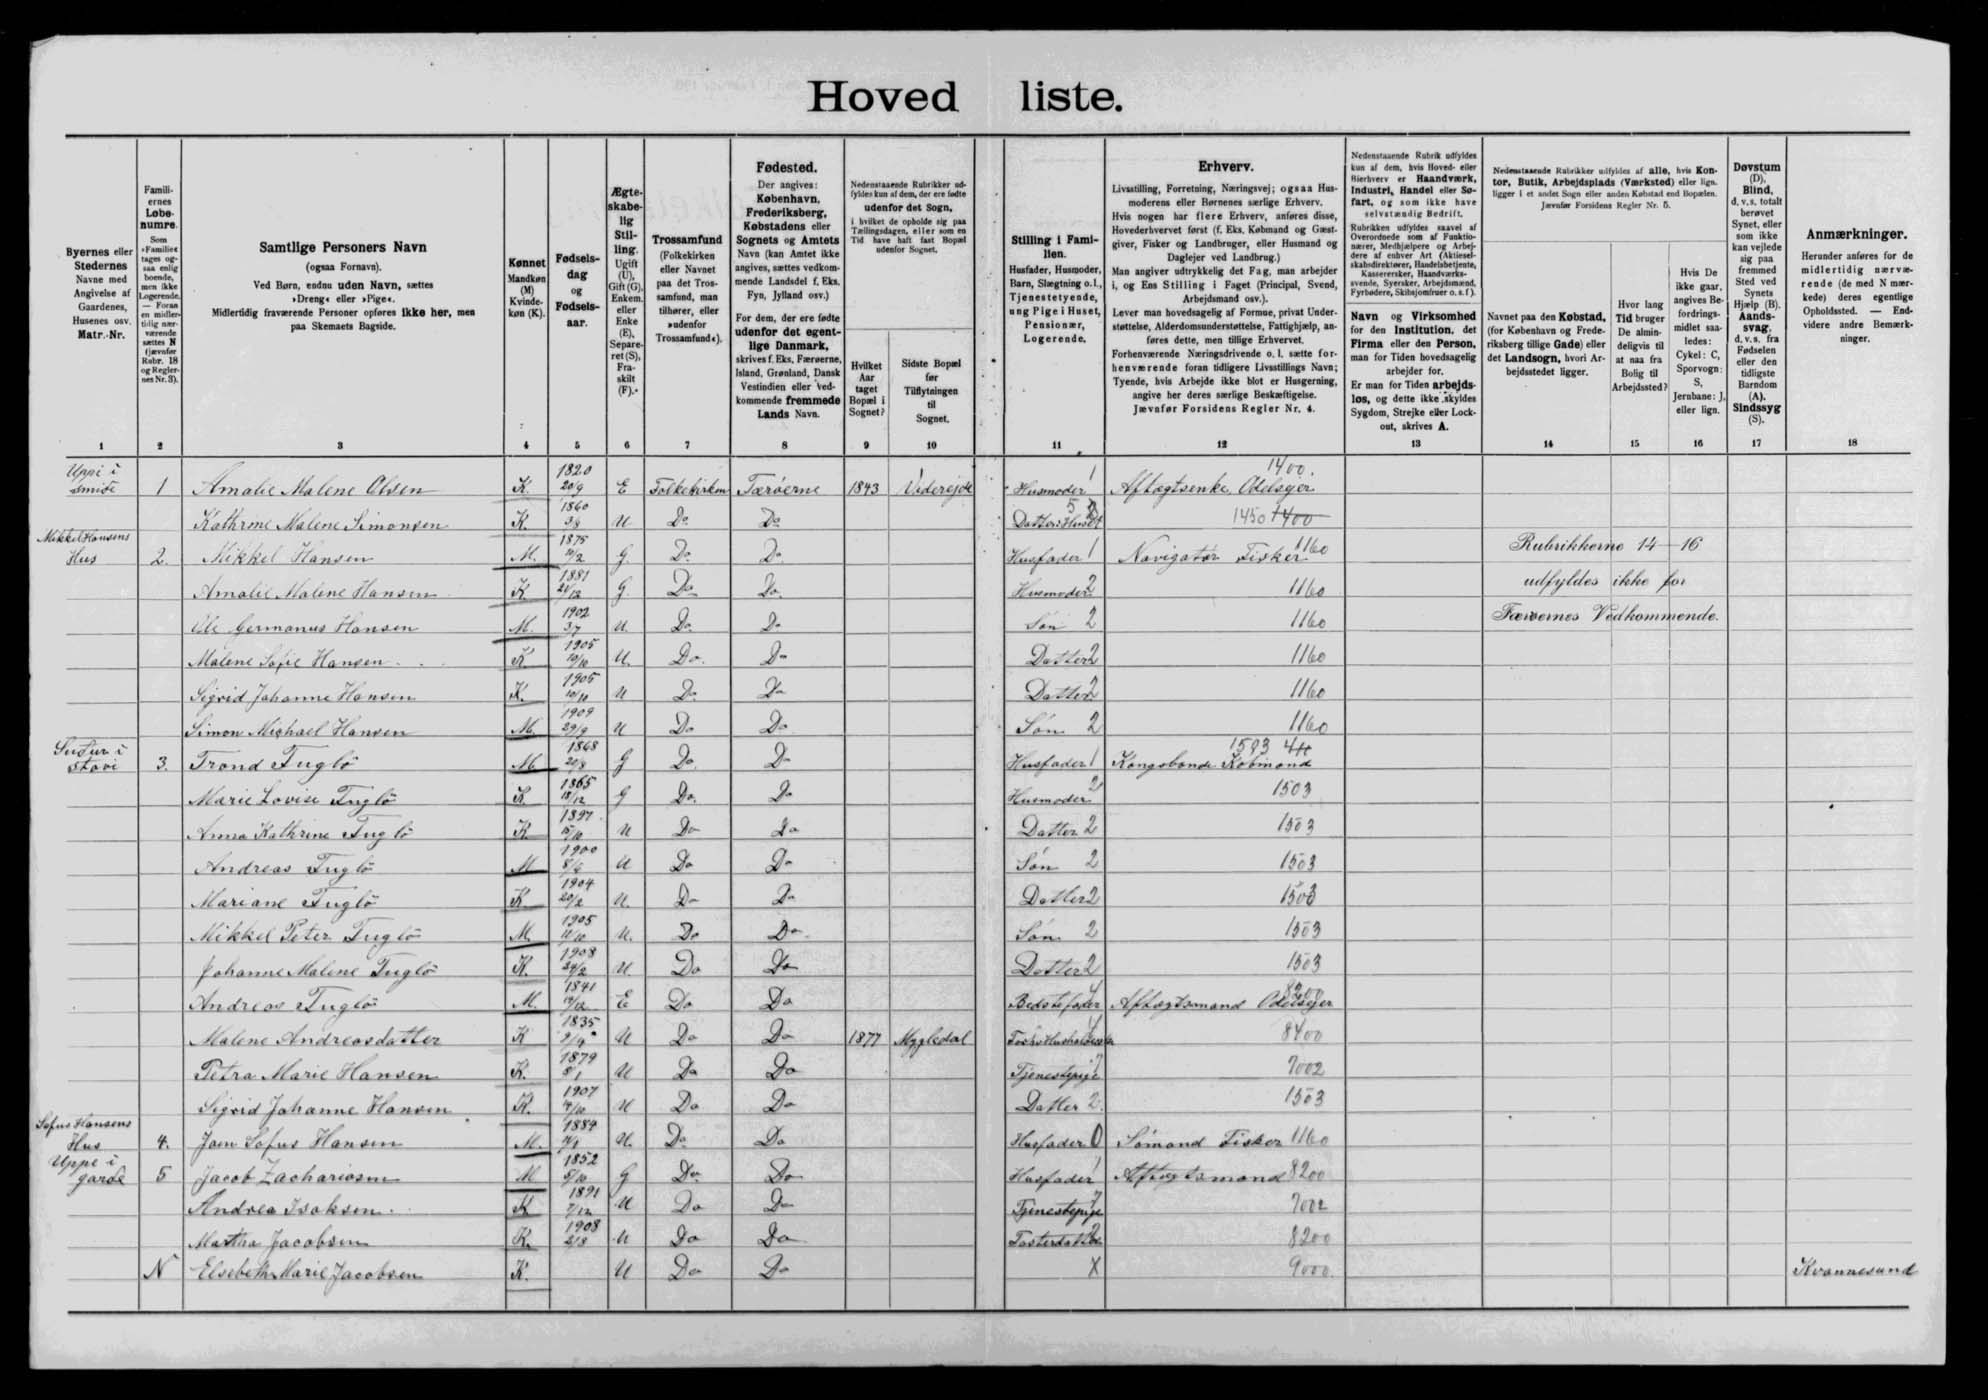 Hoved liste.
Byernes eller Stedernes Navne med Angivelse af Gaardenes, Husenes osv. Matr.-Nr.
Familiernes Løbenumre. Som »Familie« tages ogsaa enlig boende, men ikke Logerende. — Foran en midlertidig nærværende sættes N (jævnfør Rubr. 18 og Reglernes Nr. 3).
Samtlige Personers Navn (ogsaa Fornavn). Ved Børn, endnu uden Navn, sættes »Dreng« eller »Pige«. Midlertidig fraværende Personer opføres ikke her, men paa Skemaets Bagside.
Kønnet Mandkøn (M) Kvindekøn (K).
Fødselsdag og Fødselsaar.
Ægteskabelig Stilling. Ugift (U), Gift (G), Enkem. eller Enke (E), Separeret (S), Fraskilt (F).
Trossamfund (Folkekirken eller Navnet paa det Trossamfund, man tilhører, eller »udenfor Trossamfund«).
Fødested. Der angives: København, Frederiksberg, Købstadens eller Sognets og Amtets Navn (kan Amtet ikke angives, sættes vedkommende Landsdel f. Eks. Fyn, Jylland osv.) For dem, der ere fødte udenfor det egentlige Danmark, skrives f. Eks. Færøerne, Island, Grønland, Dansk Vestindien eller vedkommende fremmede Lands Navn.
Nedenstaaende Rubrikker udfyldes kun af dem, der ere fødte udenfor det Sogn, i hvilket de opholde sig paa Tællingsdagen, eller som en Tid have haft fast Bopæl udenfor Sognet.
Hvilket Aar taget Bopæl i Sognet?
Sidste Bopæl før Tilflytningen til Sognet.
Stilling i Familien. Husfader, Husmoder, Barn, Slægtning o. l., Tjenestetyende, ung Pige i Huset, Pensionær, Logerende.
Erhverv. Livsstilling, Forretning, Næringsvej; ogsaa Husmoderens eller Børnenes særlige Erhverv. Hvis nogen har flere Erhverv, anføres disse, Hovederhvervet først (f. Eks. Købmand og Gæstgiver, Fisker og Landbruger, eller Husmand og Daglejer ved Landbrug.) Man angiver udtrykkelig det Fag, man arbejder i, og Ens Stilling i Faget (Principal, Svend, Arbejdsmand osv.). Lever man hovedsagelig af Formue, privat Understøttelse, Alderdomsunderstøttelse, Fattighjælp, anføres dette, men tillige Erhvervet. Forhenværende Næringsdrivende o. l. sætte forhenværende foran tidligere Livsstillings Navn; Tyende, hvis Arbejde ikke blot er Husgerning, angive her deres særlige Beskæftigelse. Jævnfør Forsidens Regler Nr. 4.
Nedenstaaende Rubrik udfyldes kun af dem, hvis Hoved- eller Bierhverv er Haandværk, Industri, Handel eller Søfart, og som ikke have selvstændig Bedrift. Rubrikken udfyldes saavel af Overordnede som af Funktionærer, Medhjælpere og Arbejdere af enhver Art (Aktieselskabsdirektører, Handelsbetjente, Kasserersker, Haandværkssvende, Syersker, Arbejdsmænd, Fyrbødere, Skibsjomfruer o. s. f.).
Navn og Virksomhed for den Institution, det Firma eller den Person, man for Tiden hovedsagelig arbejder for. Er man for Tiden arbejdsløs, og dette ikke skyldes Sygdom, Strejke eller Lockout, skrives A.
Nedenstaaende Rubrikker udfyldes af alle, hvis Kontor, Butik, Arbejdsplads (Værksted) eller lign. ligger i et andet Sogn eller anden Købstad end Bopælen. Jævnfør Forsidens Regler Nr. 5.
Navnet paa den Købstad, (for København og Frederiksberg tillige Gade) eller det Landsogn, hvori Arbejdsstedet ligger.
Hvor lang Tid bruger De almindeligvis til at naa fra Bolig til Arbejdssted?
Hvis De ikke gaar, angives Befordringsmidlet saaledes: Cykel: C, Sporvogn: S, Jernbane: J, eller lign.
Døvstum (D), Blind, d. v. s. totalt berøvet Synet, eller som ikke kan vejlede sig paa fremmed Sted ved Synets Hjælp (B). Aandssvag, d. v. s. fra Fødselen eller den tidligste Barndom (A). Sindssyg (S).
Anmærkninger. Herunder anføres for de midlertidig nærværende (de med N mærkede) deres egentlige Opholdssted. — Endvidere andre Bemærkninger.
1 2 3 4 5 6 7 8 9 10 11 12 13 14 15 16 17 18
Uppi i smite 1 Amalie Malene Olsen K. 1820 20/9 E Folkekirken Færöerne 1843 Videreide Husmoder 1 Aftægtsenke, Odelsejer 1400.
Kathrine Malene Simonsen K. 1860 3/8 U Do Do Datter: 5 1450 1400
Mikkel Hansens Hus 2. Mikkel Hansen M. 1875 10/2 G. Do Do Husfader 1 Navigatør Fisker 1160 Rubrikkerne 14—16
Amalie Malene Hansen K 1881 21/12 G. Do Do. Husmoder 2 1160 udfyldes ikke for
Ole Germanus Hansen M. 1902 3/7 U. Do Do Søn 2 1160 Færøernes Vedkommende.
Malene Sofie Hansen K 1905 10/10 U. Do. Do Datter 2 1160
Sigrid Johanne Hansen K. 1905 10/10 U Do Do Datter 2 1160
Simon Michael Hansen M. 1909 29/9 U Do Do Søn 2 1160
Sudur i stovi 3. Trond Fuglö M 1868 20/8 G Do. Do Husfader 1 Kongsbonde Kobmand 1503
Marie Lovise Fuglö K 1865 18/12 G Do. Do Husmoder 2 1503
Anna Kathrine Fuglö K 1897 15/10 U Do Do Datter 2 1503
Andreas Fuglö M 1900 U Do Do Søn 2 1503
Mariane Fuglö K. 1904 20/2 U. Do Do Datter 2 1503
Mikkel Peter Fuglö M. 1905 11/10 U. Do Do Søn 2 1503
Johanne Malene Fuglö K. 1908 24/2 U Do Do Datter 2 1503
Andreas Fuglö M. 1841 E Do Do Bedstefader 4 Aftægtsmand Odelsejer 8200
Malene Andreasdatter K 1835 U Do Do 1877 Mygledal 8400
Petra Marie Hansen K. 1879 U Do Do Tjenestepige 7 7002
Sigrid Johanne Hansen K. 1907 4/10 U Do Do Datter 2 1503
Sofus Hansens Hus 4. Joen Sofus Hansen M. 1884 U. Do Do Husfader 0 Sömand Fisker 1160
Uppi i garde 5 Jacob Zachariasen M 1852 5/10 G Do Do Husfader 1 Aftægtsmand 8200
Andrea Isaksen K 1891 7/12 U Do Do Tjenestepige 7 7002
Martha Jacobsen K. 1908 2/8 U Do Do Fosterdatter 2 8200
N Elsebeth Marie Jacobsen K. U Do Do X 9000. Kvannesund